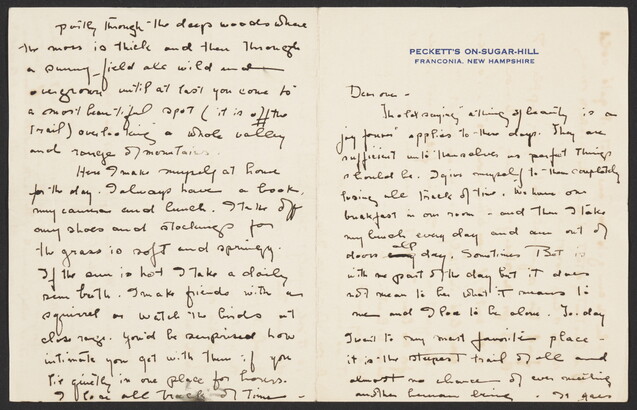 PECKETT'S ON-SUGAR-HILL
FRANCONIA, NEW HAMPSHIRE
Dear one -
The old saying "a thing of beauty is a
joy forever" applies to these days. They are
sufficient unto themselves as perfect things
should be. I give myself to them completely
losing all track of time. We have our
breakfast in our room - and then I take
my lunch every day and am out of
doors all day. Sometimes Bet is
with me part of the day but it does
not mean to her what it means to
me and I love to be alone. To-day
I went to my most favorite place -
it is the steepest trail of all and
almost no chance of ever meeting
another human being. It goes
partly through the deep woods where
the moss is thick and then through
a sunny field all wild and
overgrown until at last you come to
a most beautiful spot (it is off the
trail) overlooking a whole valley
and range of mountains.
Here I make myself at home
for the day. I always have a book,
my camera and lunch. I take off
my shoes and stockings for
the grass is soft and springy.
If the sun is hot I take a daily
sun bath. I make friends with a
squirrel or watch the birds at
close range. You'd be surprised how
intimate you get with them if you
lie quietly in one place for hours.
I lose all track of time -